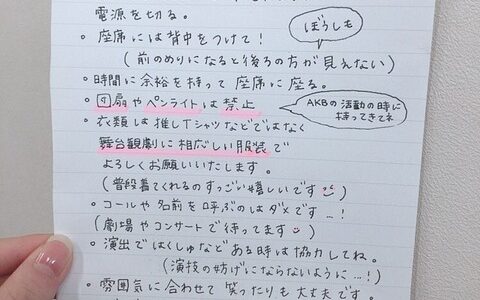 電源を切る。
ぼうしも
・座席には背中をつけて!
(前のめりになると後ろの方が見えない)
・時間に余裕を持って座席に座る。
・団扇やペンライトは禁止
AKBの活動の時に
持ってきてネ
・衣類は推しTシャツなどではなく
舞台観劇に相応しい服装で
よろしくお願いいたします。
(普段着てくれるのすっごい嬉しいです)
・コールや名前を呼ぶのはダメです…!
(劇場やコンサートで待ってます)
・演出ではくしゅなどある時は協力してね。
(演技の妨げにならないように…!)
・雰囲気に合わせて笑ったりも大丈夫です